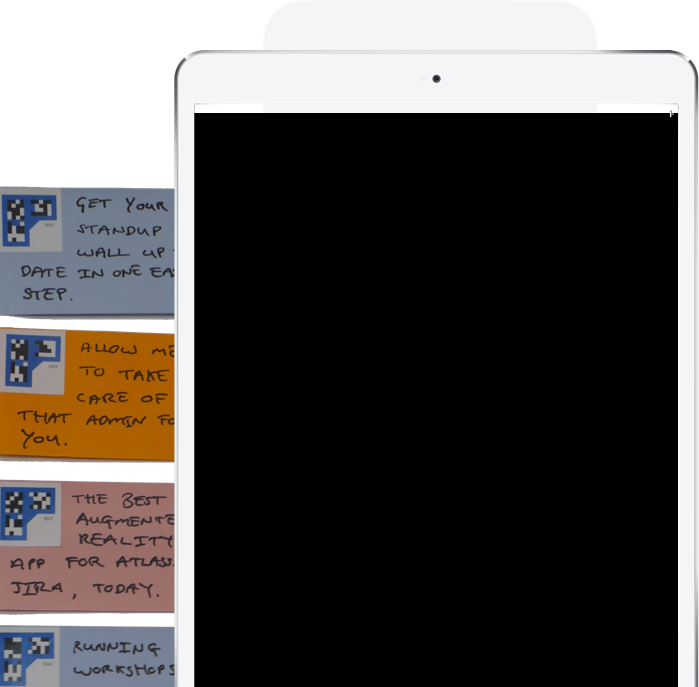 GET YOUR
STANDUP
WALL UP
DATE IN ONE
STEP.
ALLOW
TO TAKE
CARE OF
THAT ADMIN
YOU.
THE BEST
REALITY
APP FOR
JIRA, TODAY.
RUNNING
WORKSHOPS